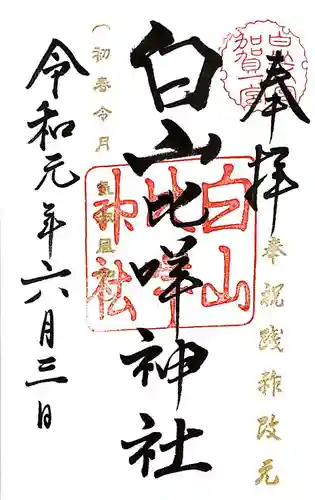 奉拝
奉祝践祚改元
白山比咩神社
白山
比咩
神社
(初春令月
氣淑風
令和元年六月三日